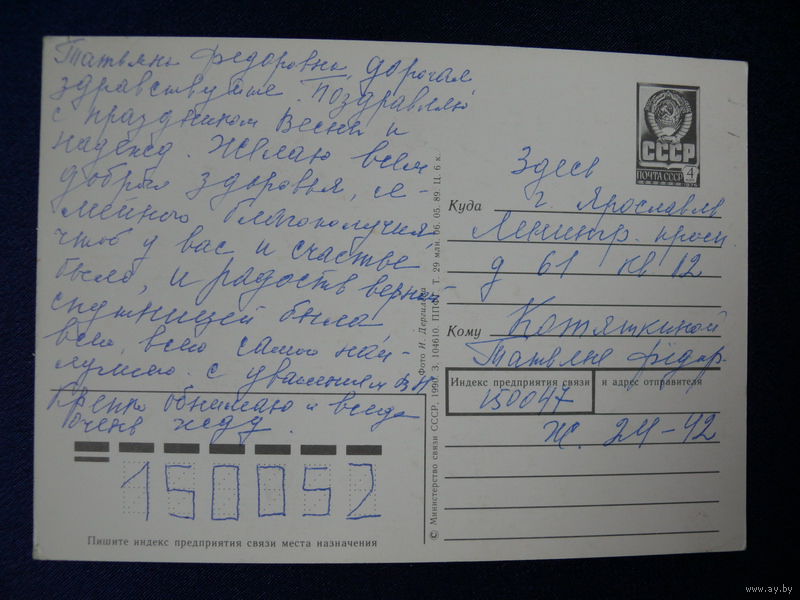 Татьяна Федоровна, дорогая
здравствуйте. Поздравляю
с праздником Весны и
надежд. Желаю всем
доброго здоровья, се-
мейного благополучия
чтоб у вас и счастье
было, и радость верной
спутницей была
всего, всего самого наи-
лучшего. с уважением
Крепко обнимаю и всегда
очень жду.
150052
Пишите индекс предприятия связи места назначения
© Министерство связи СССР, 1990. З. 104610. ППФГ. Т. 29 млн. 06. 05. 89. Ц. 6 к.
Фото И. Дергилёва
СССР
ПОЧТА СССР 4
Здесь
Куда г. Ярославль
Ленингр. просп
д 61 кв 12
Кому Котяшкиной
Татьяне Федор.
Индекс предприятия связи и адрес отправителя
150047
Ж. 24-42
www.ay.by